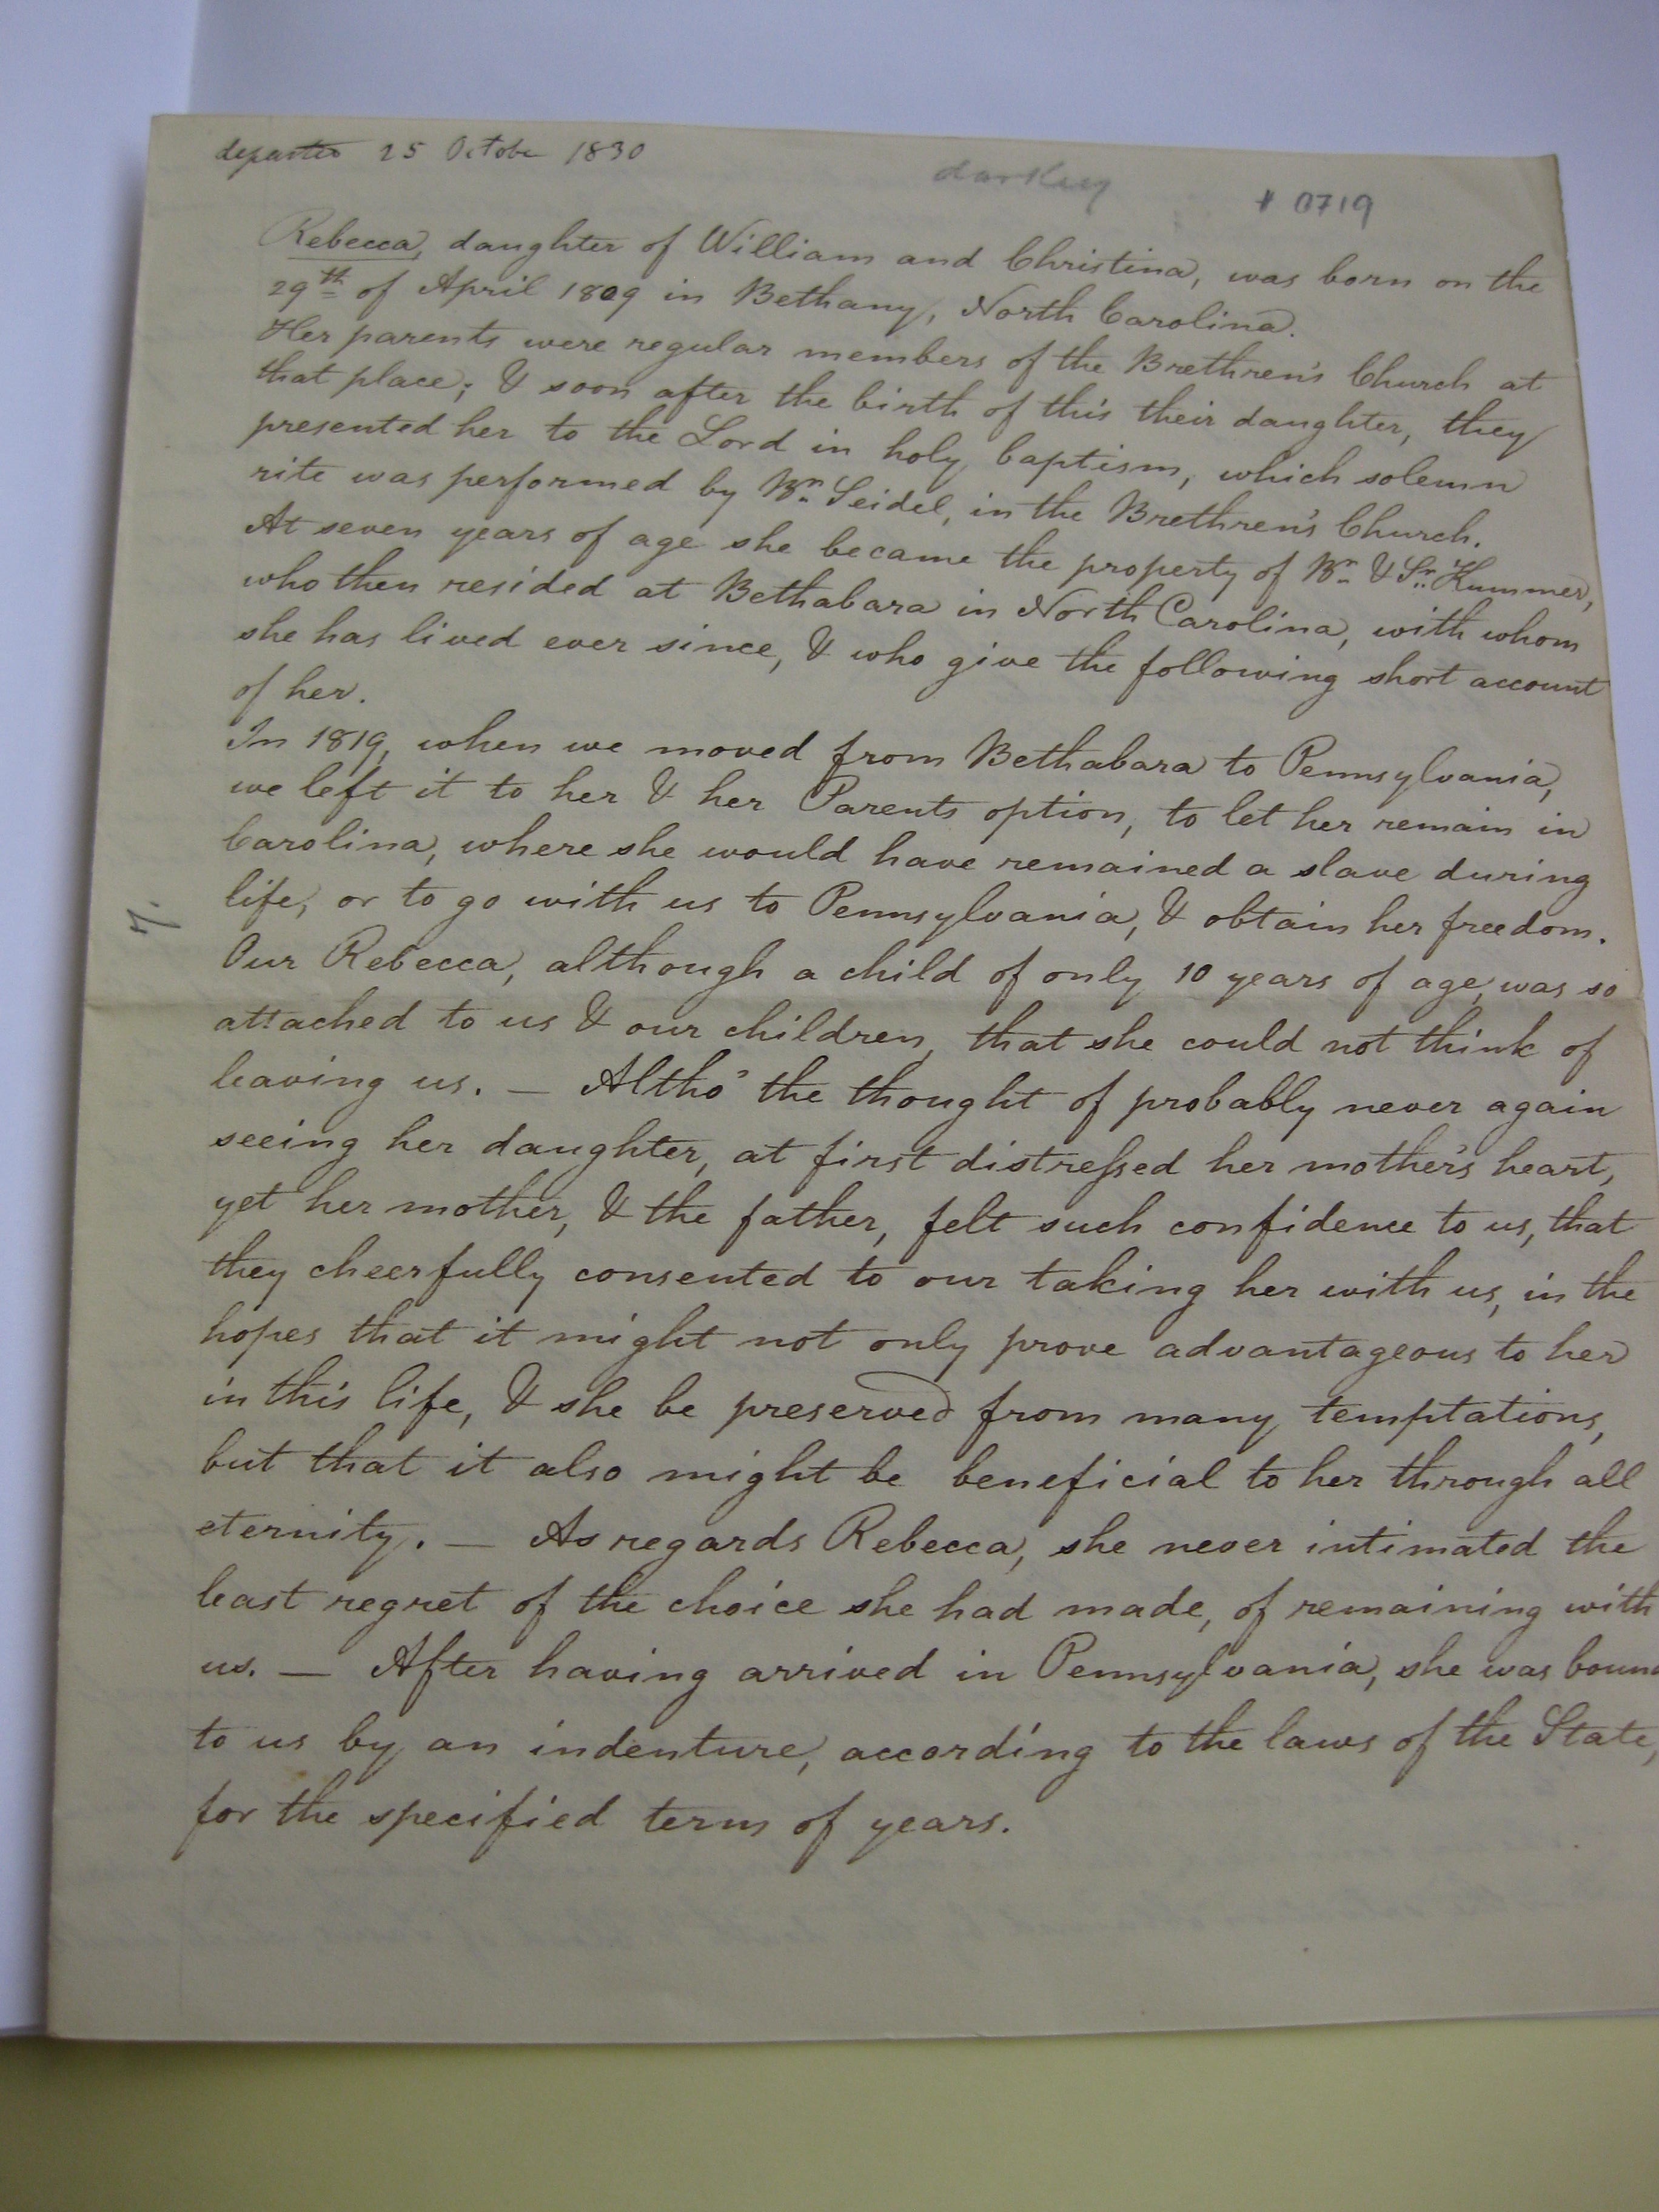 departed 25 October 1830
darkey
# 0719
Rebecca, daughter of William and Christina, was born on the
29th of April 1809 in Bethany, North Carolina.
Her parents were regular members of the Brethren's Church at
that place; & soon after the birth of this their daughter, they
presented her to the Lord in holy baptism, which solemn
rite was performed by Br. Seidel, in the Brethren's Church.
At seven years of age she became the property of Br. & Sr. Kummer,
who then resided at Bethabara in North Carolina, with whom
she has lived ever since, & who give the following short account
of her.
In 1819, when we moved from Bethabara to Pennsylvania,
we left it to her & her Parents option, to let her remain in
Carolina, where she would have remained a slave during
life, or to go with us to Pennsylvania, & obtain her freedom.
7.
Our Rebecca, although a child of only 10 years of age, was so
attached to us & our children, that she could not think of
leaving us. — Altho' the thought of probably never again
seeing her daughter, at first distressed her mother's heart,
yet her mother, & the father, felt such confidence to us, that
they cheerfully consented to our taking her with us, in the
hopes that it might not only prove advantageous to her
in this life, & she be preserved from many temptations,
but that it also might be beneficial to her through all
eternity. — As regards Rebecca, she never intimated the
least regret of the choice she had made, of remaining with
us. — After having arrived in Pennsylvania, she was bound
to us by an indenture, according to the laws of the State,
for the specified term of years.